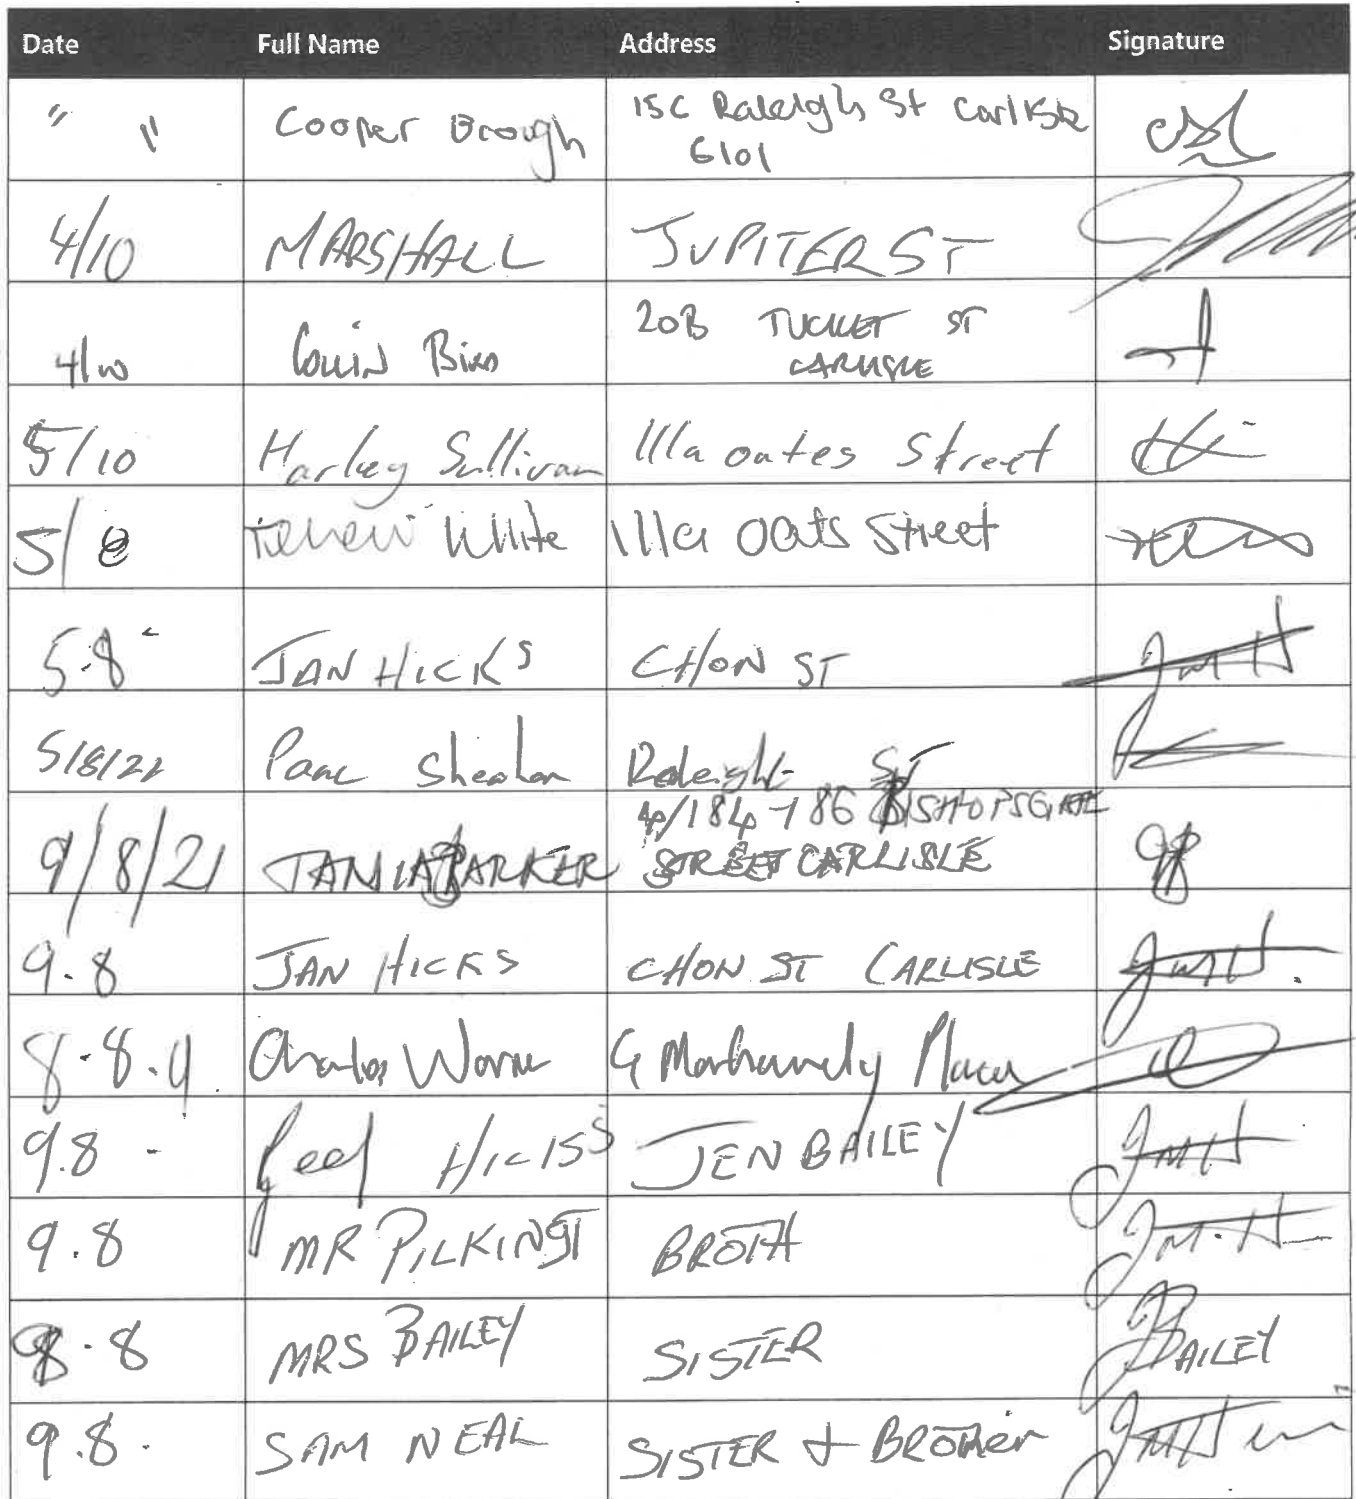 Date Full Name Address Signature
" " Cooper Brough 15C Raleigh St Carlisle
6101
4/10 MARSHALL JUPITER ST
4/10 Colin Bird 20B TUCKET ST
CARLISLE
5/10 Harley Sullivan 111a oates Street
5/8 White 111a Oats Street
5.8 JAN HICKS CHON ST
5/8/21 Sheahan Raleigh ST
9/8/21 TANIA PARKER 4/184-186 BISHOPSGATE
STREET CARLISLE
9.8 JAN HICKS CHON ST CARLISLE
8.8.21 Charles Place
9.8 - HICKS JEN BAILEY
9.8 MR PILKINGT BROTH
8.8 MRS BAILEY SISTER BAILEY
9.8. SAM NEAL SISTER & BROTHER